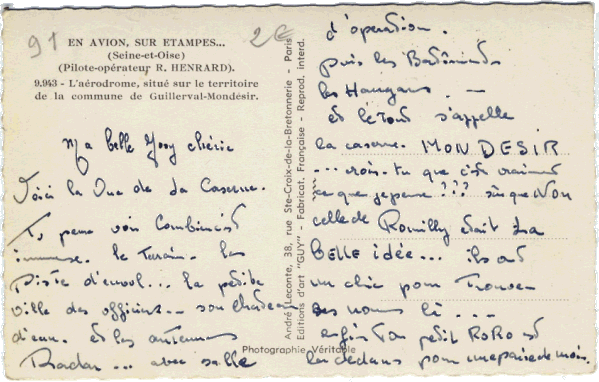 91
2€
EN AVION, SUR ETAMPES...
(Seine-et-Oise)
(Pilote-opérateur R. HENRARD).
9.943 - L'aérodrome, situé sur le territoire
de la commune de Guillerval-Mondésir.
Ma belle chérie
Voici la Vue de la Caserne.
Tu peux voir Combien c'est
immense. le Terrain. les
Piste d'envol... la petite
ville des officiers... son chateau
d'eau. et les antennes
Radar... avec salle
André Leconte, 38, rue Ste-Croix-de-la-Bretonnerie - Paris
Editions d'art "GUY" - Fabricat. Française - Reprod. interd.
Photographie Véritable
d'opération.
puis les Batiments
les Hangars. —
et le tout s'appelle
la caserne. MON DESIR
... vois-tu que c'est vraiment
ce que je pense ??? que Non
celle de Romilly était La
BELLE idée... ils ont
un chic pour Trouver
ses noms là...
enfin Ton petit RoRo est
la dedans pour une paire de mois.